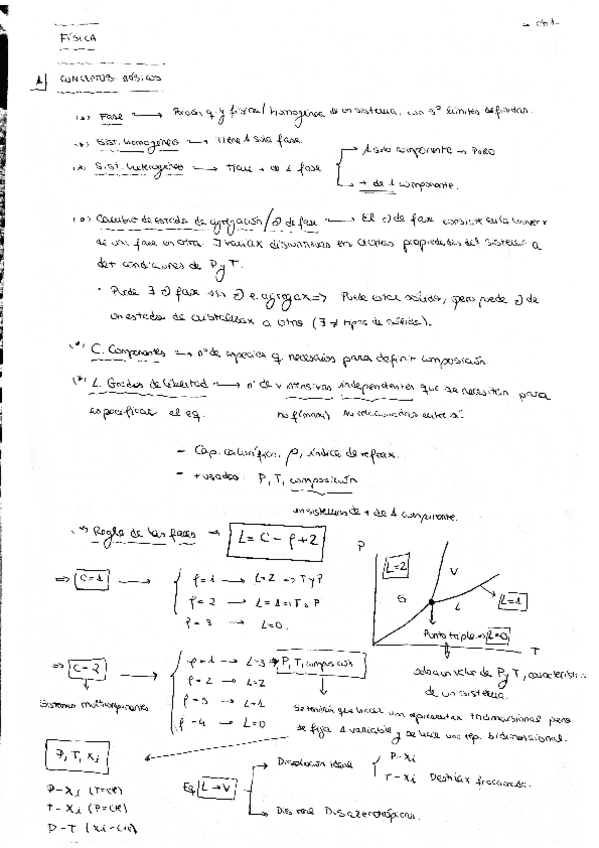 FÍSICA
1) CONCEPTOS BÁSICOS
(*) Fase → Porción q. y física/ homogénea de un sistema, con 3º límites definidos.
(*) Sist. homogéneo → Tiene 1 sola fase.
(*) Sist. heterogéneo → Tiene + de 1 fase
→ 1 solo componente → PURO
→ + de 1 componente.
(*) Cambio de estado de agregación / de fase → El de fase consiste en la
de un fase en otra. ∃ discontinuas en ciertas propiedades del sistema a
det condiciones de P y T.
• Puede ∃ fase sin e. agregax => Puede estar sólido, pero puede de
un estado de cristalizax a otro (∃ ≠ tipos de sólidos).
(*) C. Componentes → nº de especies q. necesarios para definir composición
(*) L. Grados de libertad → nº de v intensivas independientes que se necesitan para
especificar el eq. no f(masa) No relacionadas entre sí.
- Cap. calorífica, ρ, índice de refrax.
- + usadas: P, T, composición
en sistemas de + de 1 componente.
(*) Regla de las fases → L = C - f + 2
=> C=1 →
f=1 → L=2 => T y P
f=2 → L=1 => T o P
f=3 → L=0.
P
L=2
S
V
L
L=1
Punto triple => L=0
T
solo un valor de P y T, característico
de un sistema.
=> C=2 →
f=1 → L=3 → P, T, composición
f=2 → L=2
f=3 → L=1
f=4 → L=0
Sistemas multicomponentes
Se tendría que hacer una representax tridimensional pero
se fija 1 variable y se hace una rep. bidimensional.
P, T, Xi
P-Xi (T=cte)
T-Xi (P=cte)
P-T (Xi-cte)
Eq L→V
→ Disolución ideal
P-Xi
T-Xi Destilax fraccionada.
→ Dis real Dis azeotrópicas.